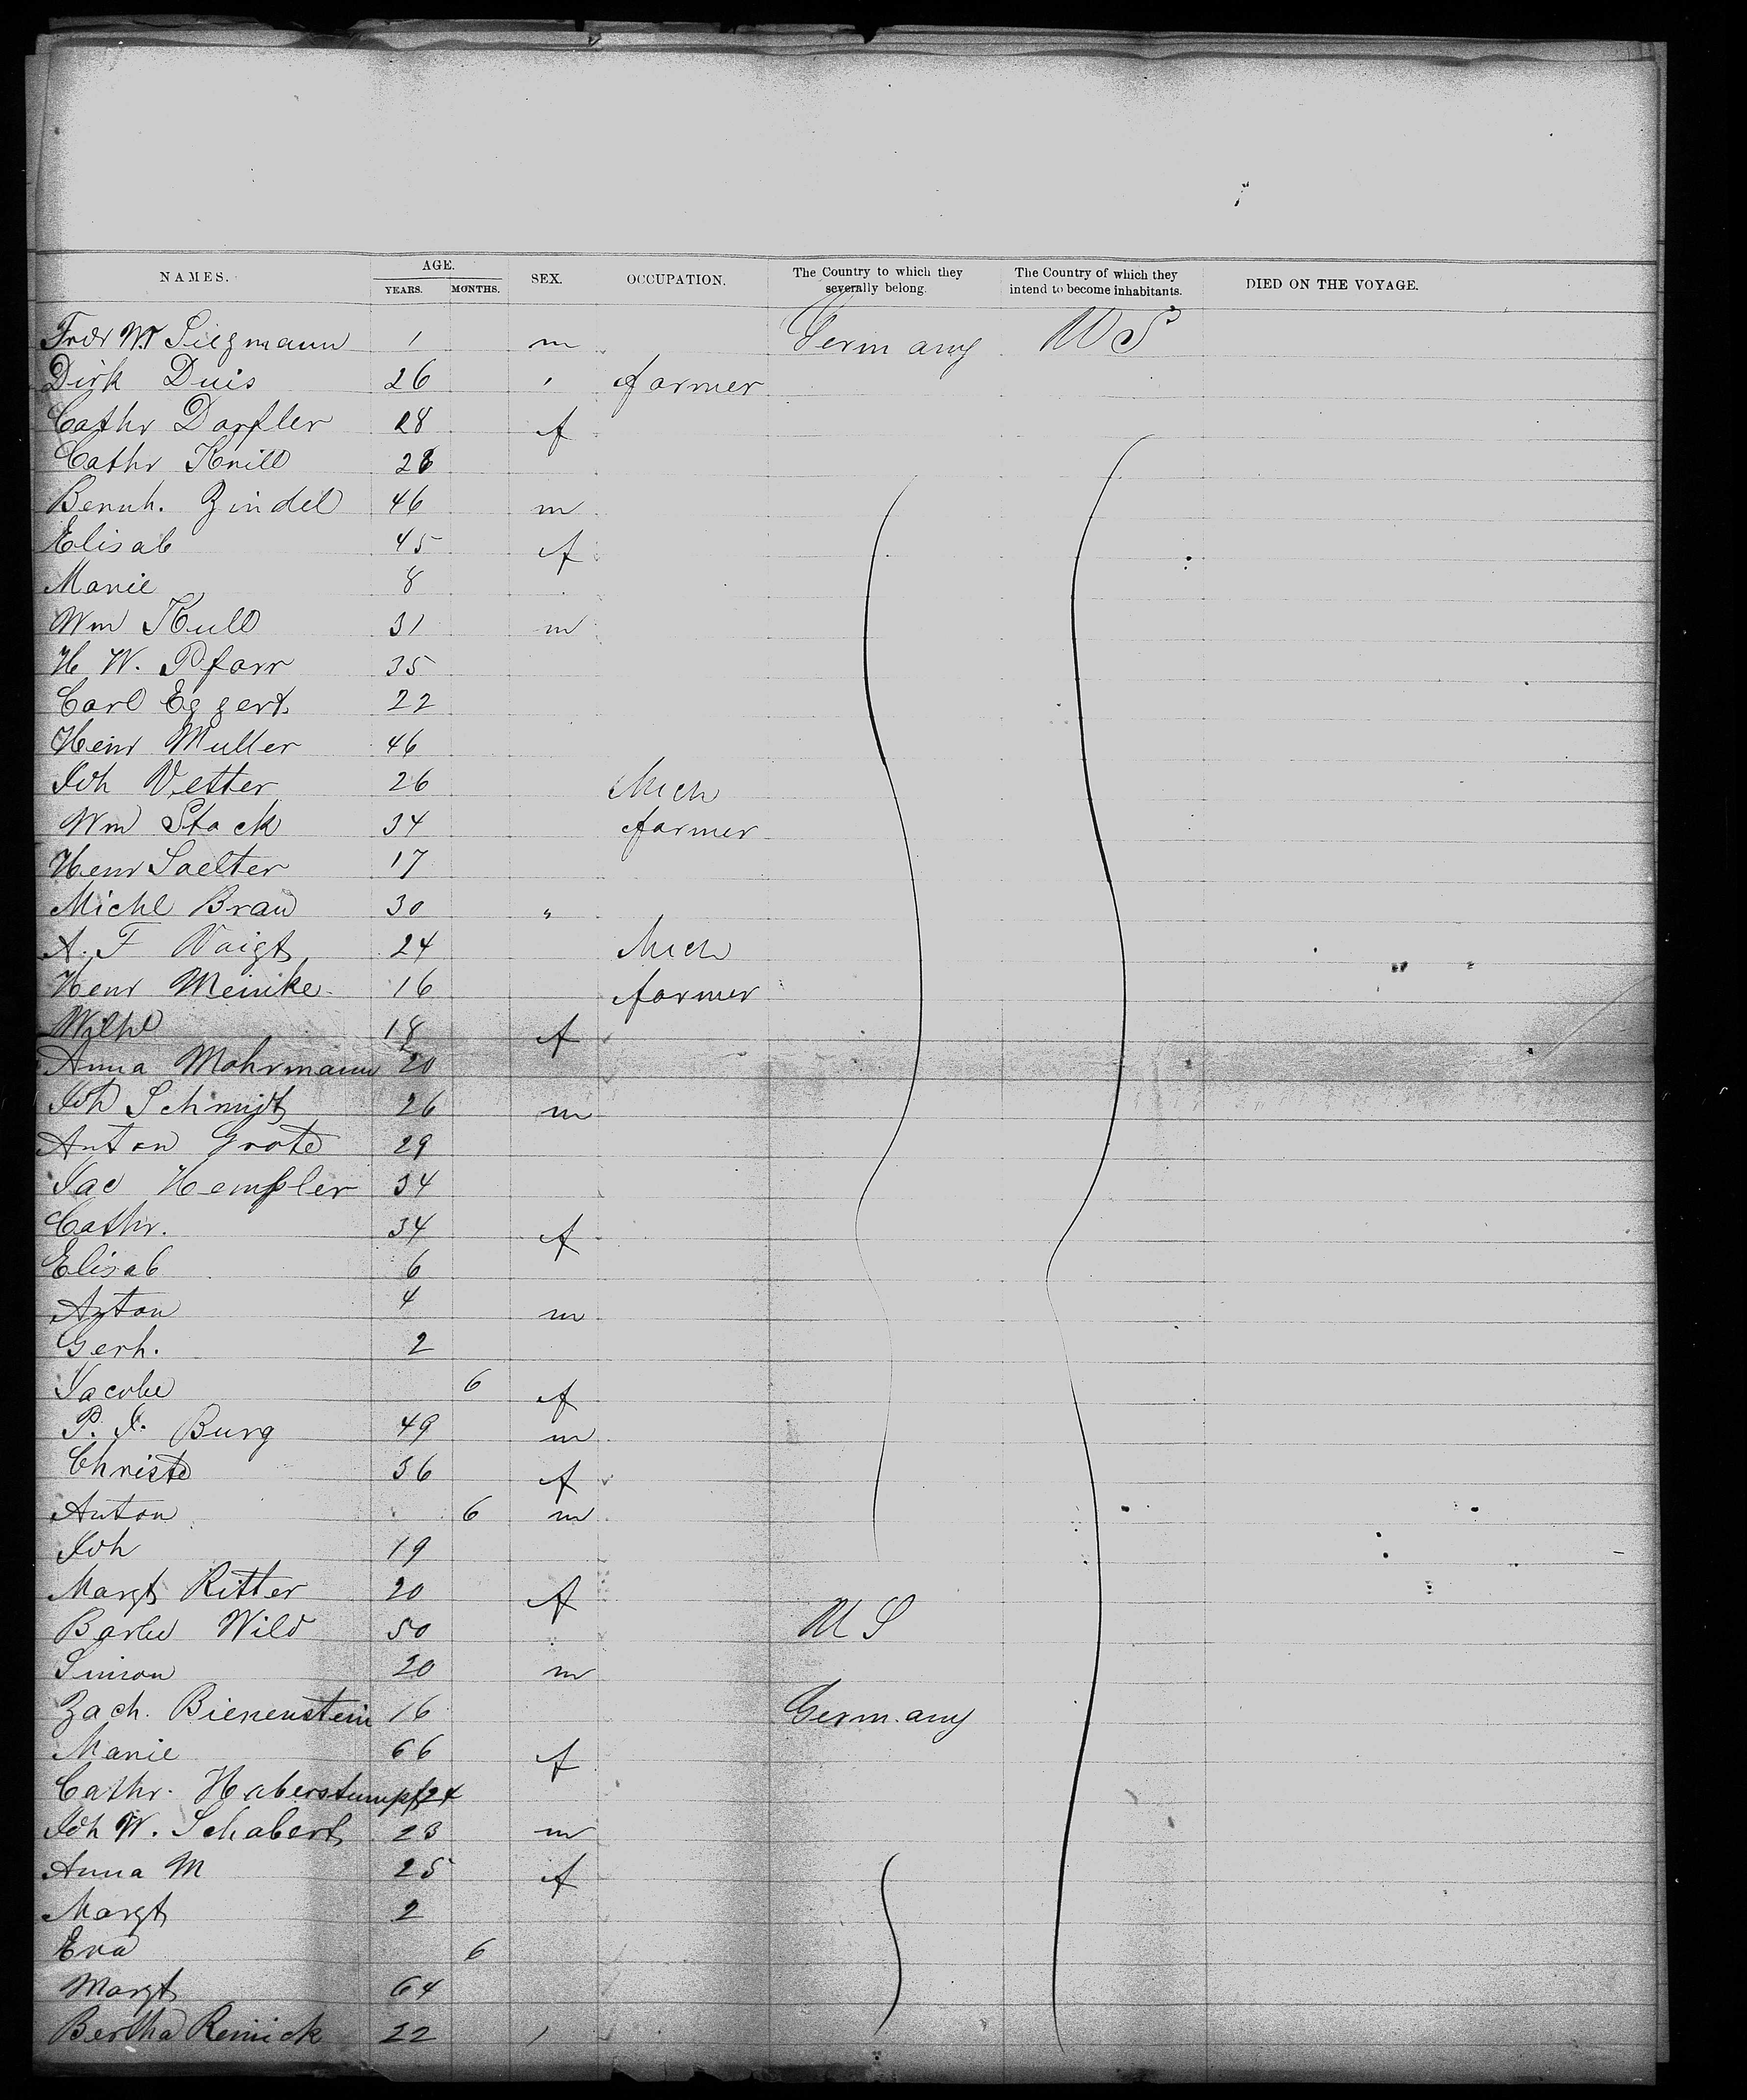 NAMES. AGE. YEARS. MONTHS. SEX. OCCUPATION. The Country to which they severally belong. The Country of which they intend to become inhabitants. DIED ON THE VOYAGE.
Fredr Wr Siegmann 1 m Germany US
Dirk Duis 26 ' farmer
Cathr Dorfler 28 f
Cathr Knill 28
Bernh. Zindel 46 m
Elisab 45 f
Marie 8
Wm Kull 31 m
H W. Pfarr 35
Carl Eggert 22
Heinr Muller 46
Joh Vetter 26 Mech
Wm Stack 34 farmer
Henr Saelter 17
Michl Brau 30 "
A. F Voigt 24 Mech
Henr Meinike 16 farmer
Wilhl 18 f
Anna Mohrmann 20
Joh Schmidt 26 m
Anton Grote 29
Jac Hempler 34
Cathr. 34 f
Elisab 6
Anton 4 m
Gerh. 2
Jacobe 6 f
P. J. Burg 49 m
Christe 36 f
Anton 6 m
Joh 19
Margt Ritter 20 f
Barbe Wild 50 US
Simon 20 m
Zach. Bienenstein 16 Germany
Marie 66 f
Cathr. Haberstumpf 24
Joh W. Schabert 23 m
Anna M 25 f
Margt 2
Eva 6
Margt 64
Bertha Reinick 22 '